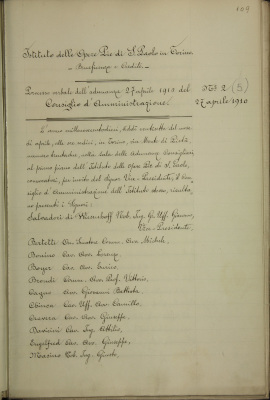 109
Istituto delle Opere Pie di S. Paolo in Torino.
- Beneficenza e Credito -
Processo verbale dell'adunanza 27 aprile 1910 del
Consiglio d'Amministrazione.
N° 2 (3)
27 aprile 1910
L'anno millenovecentodieci, addì ventisette del mese
di aprile, alle ore sedici, in Torino, via Monte di Pietà,
numero trentadue, nella Sala delle Adunanze Consigliari
al piano primo dell'Istituto delle Opere Pie di S. Paolo,
convocatosi, per invito del Signor Vice-Presidente, il Con
siglio d'Amministrazione dell'Istituto stesso, risulta
no presenti i Signori:
Salvadori di Wiesenhoff Nob. Ing. Gr. Uff. Giacomo,
Vice-Presidente,
Bertetti Avv. Comm. Michele,
Bonino Cav. Avv. Lorenzo,
Boyer Cav. Avv. Enrico,
Brondi Comm. Avv. Prof. Vittorio,
Cagno Avv. Giovanni Battista,
Cav. Uff. Avv. Camillo,
Cravero Cav. Avv. Giuseppe,
Davicini Cav. Ing. Attilio,
Engelfred Cav. Avv. Giuseppe,
Nob. Ing. Guido,